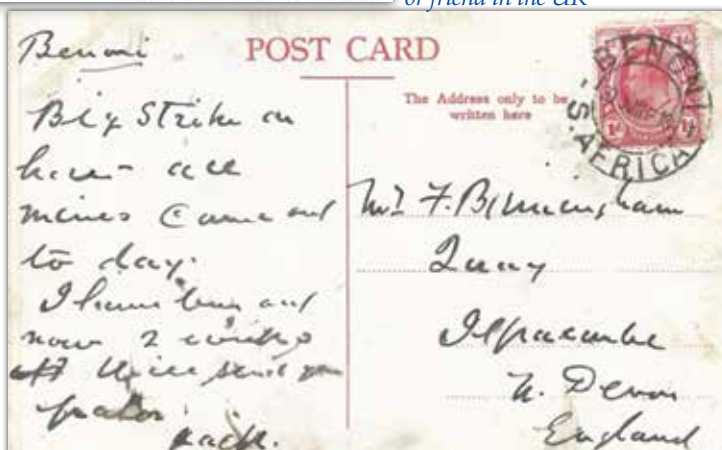 or friend in the UK
Benoni
POST CARD
The Address only to be
written here
BENONI
S. AFRICA
1d 1d
Big Strike on
here - all
mines Came out
to day.
I have been out
now 2 weeks
Will send you
Jack.
Mr F. Birmingham
Quay
Ilfracombe
N. Devon
England